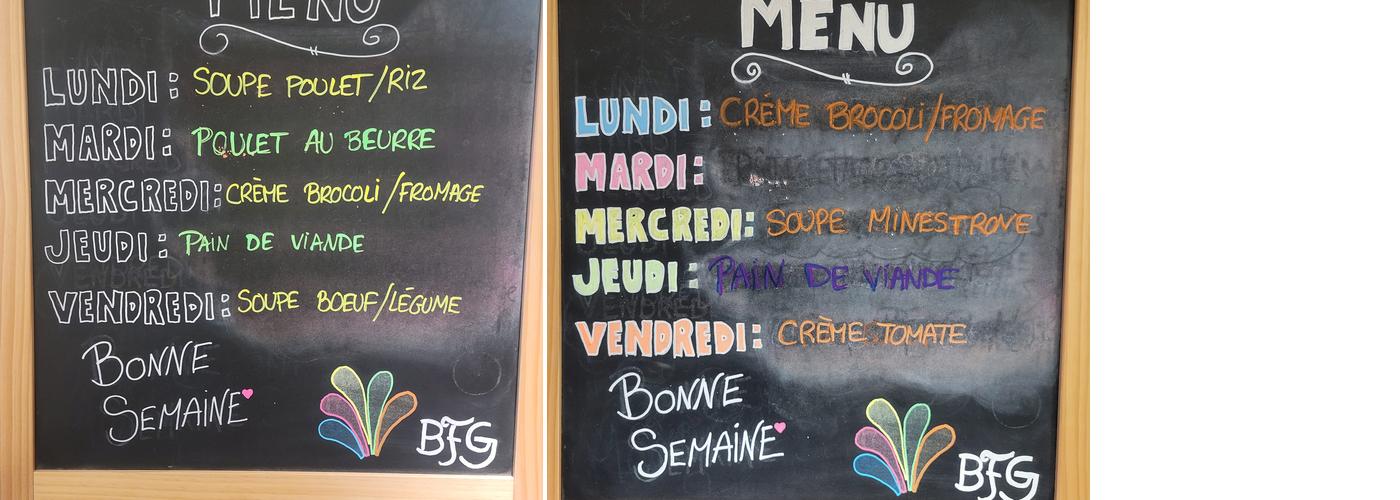 MENU
LUNDI: SOUPE POULET/RIZ
MARDI: POULET AU BEURRE
MERCREDI: CRÈME BROCOLI/FROMAGE
JEUDI: PAIN DE VIANDE
VENDREDI: SOUPE BOEUF/LÉGUME
BONNE
SEMAINE
BFG
MENU
LUNDI: CRÉME BROCOLI/FROMAGE
MARDI:
MERCREDI: SOUPE MINESTRONE
JEUDI: PAIN DE VIANDE
VENDREDI: CRÈME TOMATE
BONNE
SEMAINE
BFG